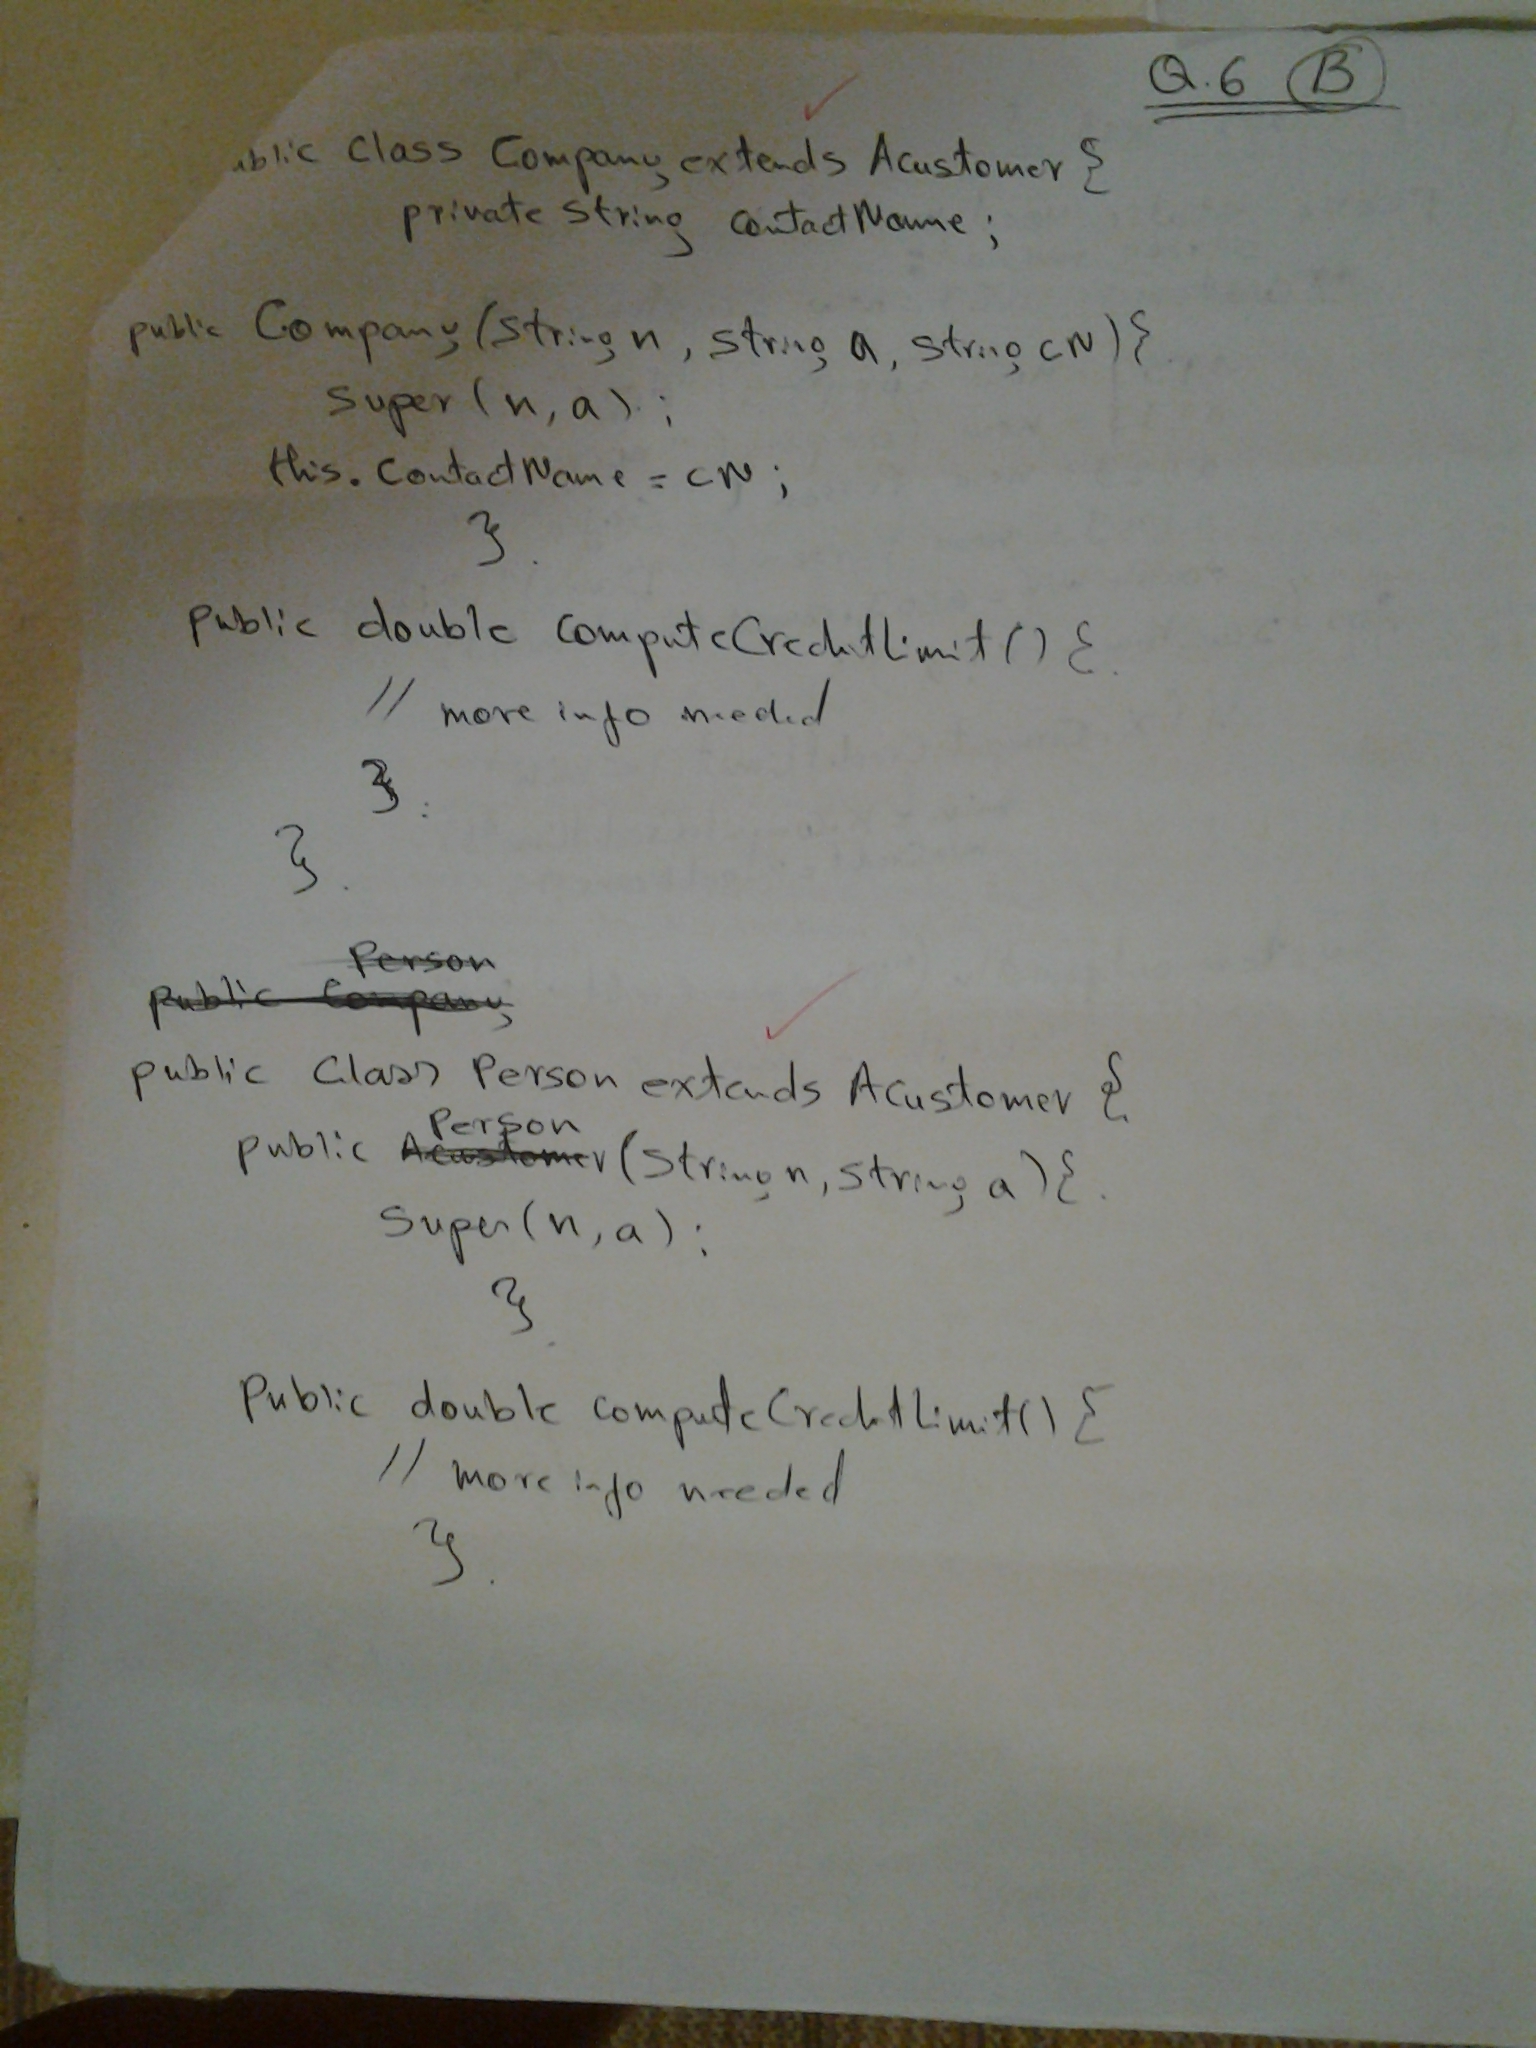 Q.6 B
ublic Class Company extends Acustomer {
private String contactName;
public Company(String n, String a, String cN){
super(n, a);
this.contactName = cN;
}.
public double computeCreditLimit() {.
// more info needed
}.
}.
Person
public Company
public Class Person extends Acustomer {
Person
public Acustomer(String n, String a){.
super(n, a);
}.
Public double computeCreditLimit() {
// more info needed
}.